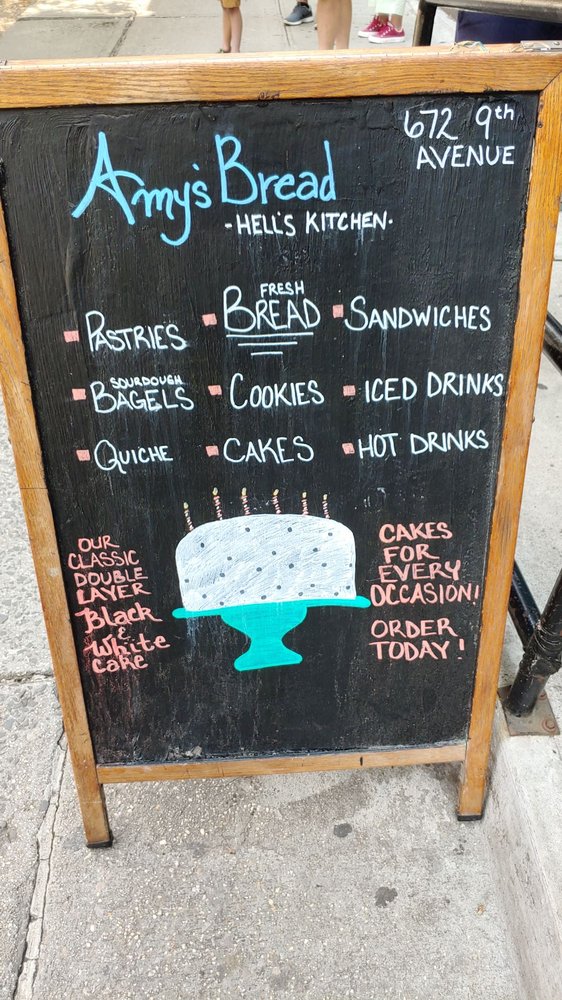 672 9th
AVENUE
Amy's Bread
-HELL'S KITCHEN-
PASTRIES
FRESH
BREAD
SANDWICHES
SOURDOUGH
BAGELS
COOKIES
ICED DRINKS
QUICHE
CAKES
HOT DRINKS
OUR
CLASSIC
DOUBLE
LAYER
Black
&
White
cake
CAKES
FOR
EVERY
OCCASION!
ORDER
TODAY!